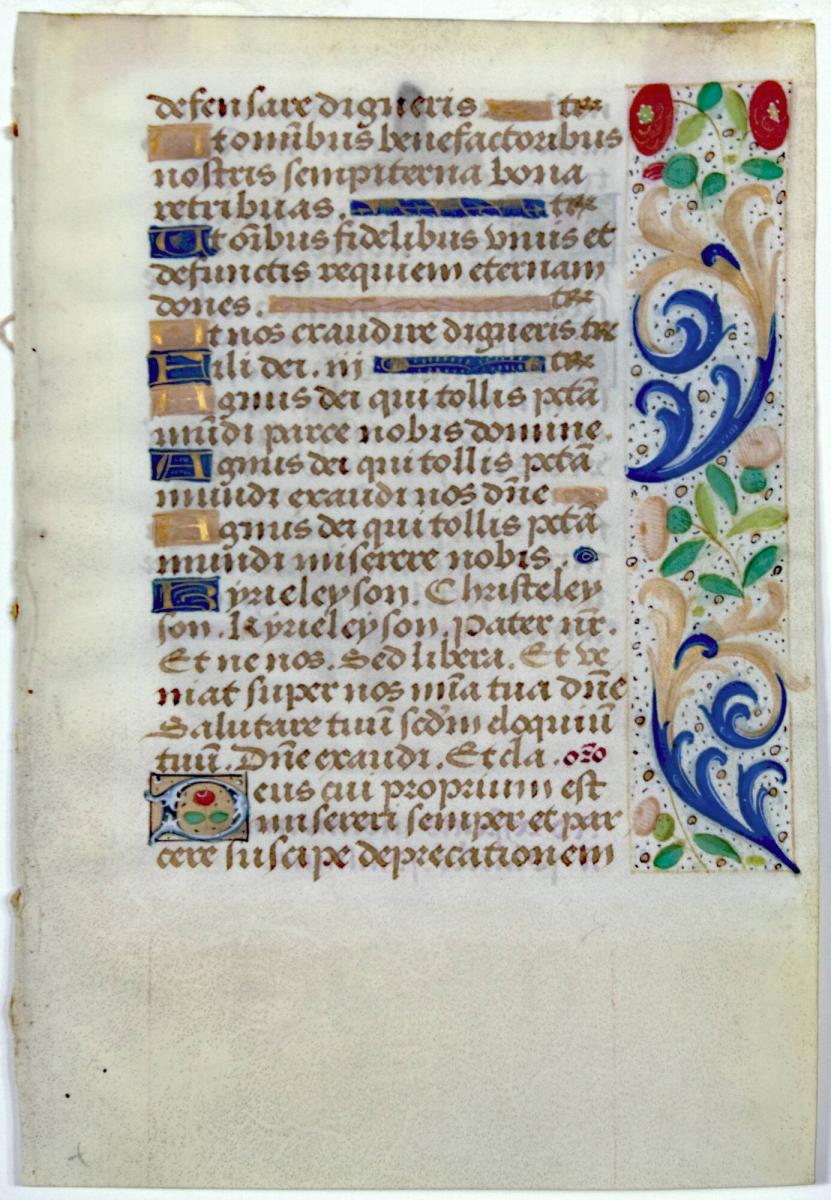 defensare digneris te r̃
Et om̃ibus benefactoribus
nostris sempiterna bona
retribuas. te r̃
Et oĩbus fidelibus viuis et
defunctis requiem eternam
dones. te r̃
Et nos exaudire digneris. te r̃
Fili dei. iij te r̃
Agnus dei qui tollis pctã
mũdi parce nobis domine.
Agnus dei qui tollis pctã
mundi exaudi nos dñe
Agnus dei qui tollis pctã
mundi miserere nobis.
Kyrieleyson. Christeley
son. Kyrieleyson. Pater nr̃.
Et ne nos. Sed libera. Et ve
niat super nos mĩa tua dñe
Salutare tuũ scđm eloquiũ
tuũ. Dñe exaudi. Et cla. or̃o
Deus cui proprium est
misereri semper et par
cere suscipe deprecationem